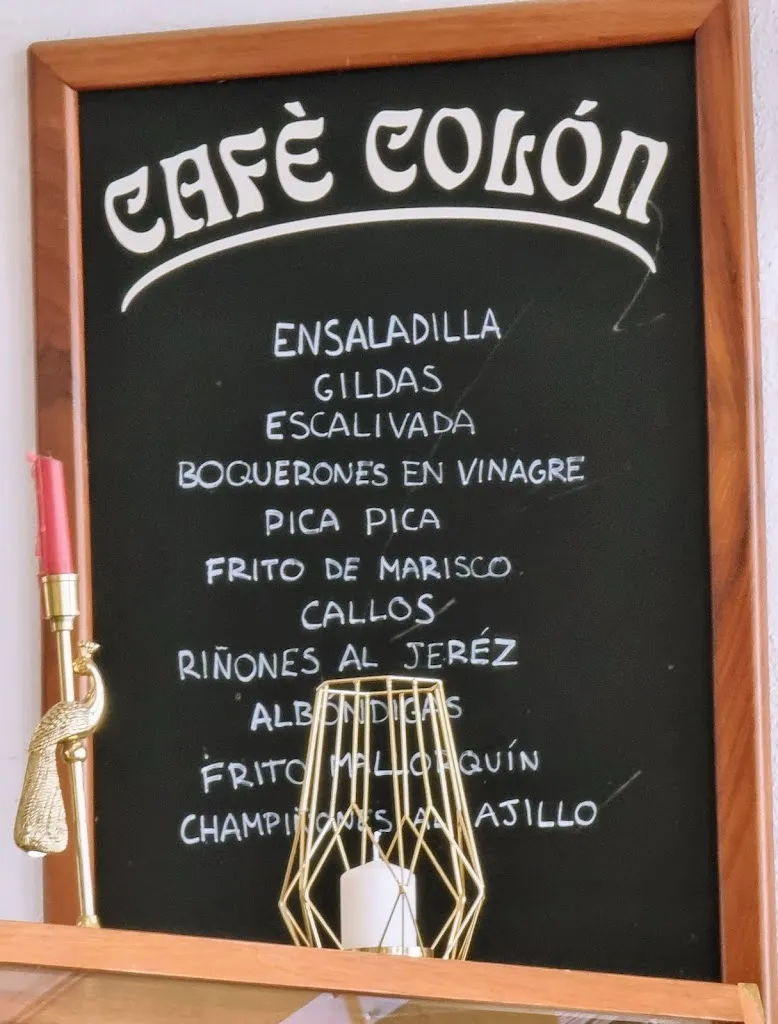 CAFÈ COLÓN
ENSALADILLA
GILDAS
ESCALIVADA
BOQUERONES EN VINAGRE
PICA PICA
FRITO DE MARISCO
CALLOS
RIÑONES AL JERÉZ
ALBONDIGAS
FRITO MALLORQUÍN
CHAMPIÑONES AL AJILLO